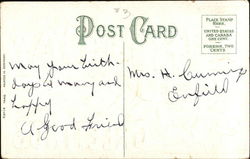 POST CARD
PLACE STAMP HERE.
UNITED STATES AND CANADA ONE CENT.
FOREIGN, TWO CENTS
May your birth-
days be many and
happy
A Good Friend
Mrs. H.
Enfield